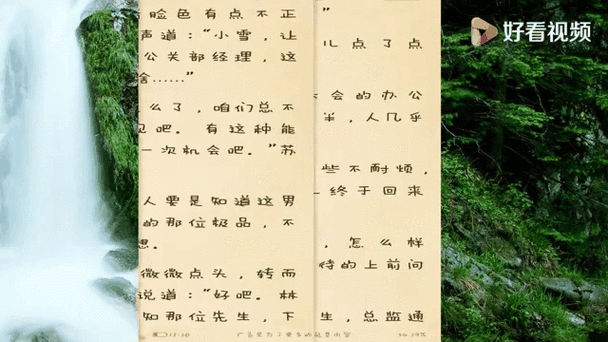 好看视频
脸色有点不正
声道:“小雪,让
公关部经理,这
啥……”
么了,咱们总不
见吧。有这种能
一次机会吧。”苏
人要是知道这男
的那位极品,不
想。
微微点头,转而
说道:“好吧。林
如那位先生,下
”
儿点了点
会的办公
半,人几乎
些不耐烦,
终于回来
,怎么样
待的上前问
生,总监通
好看视频